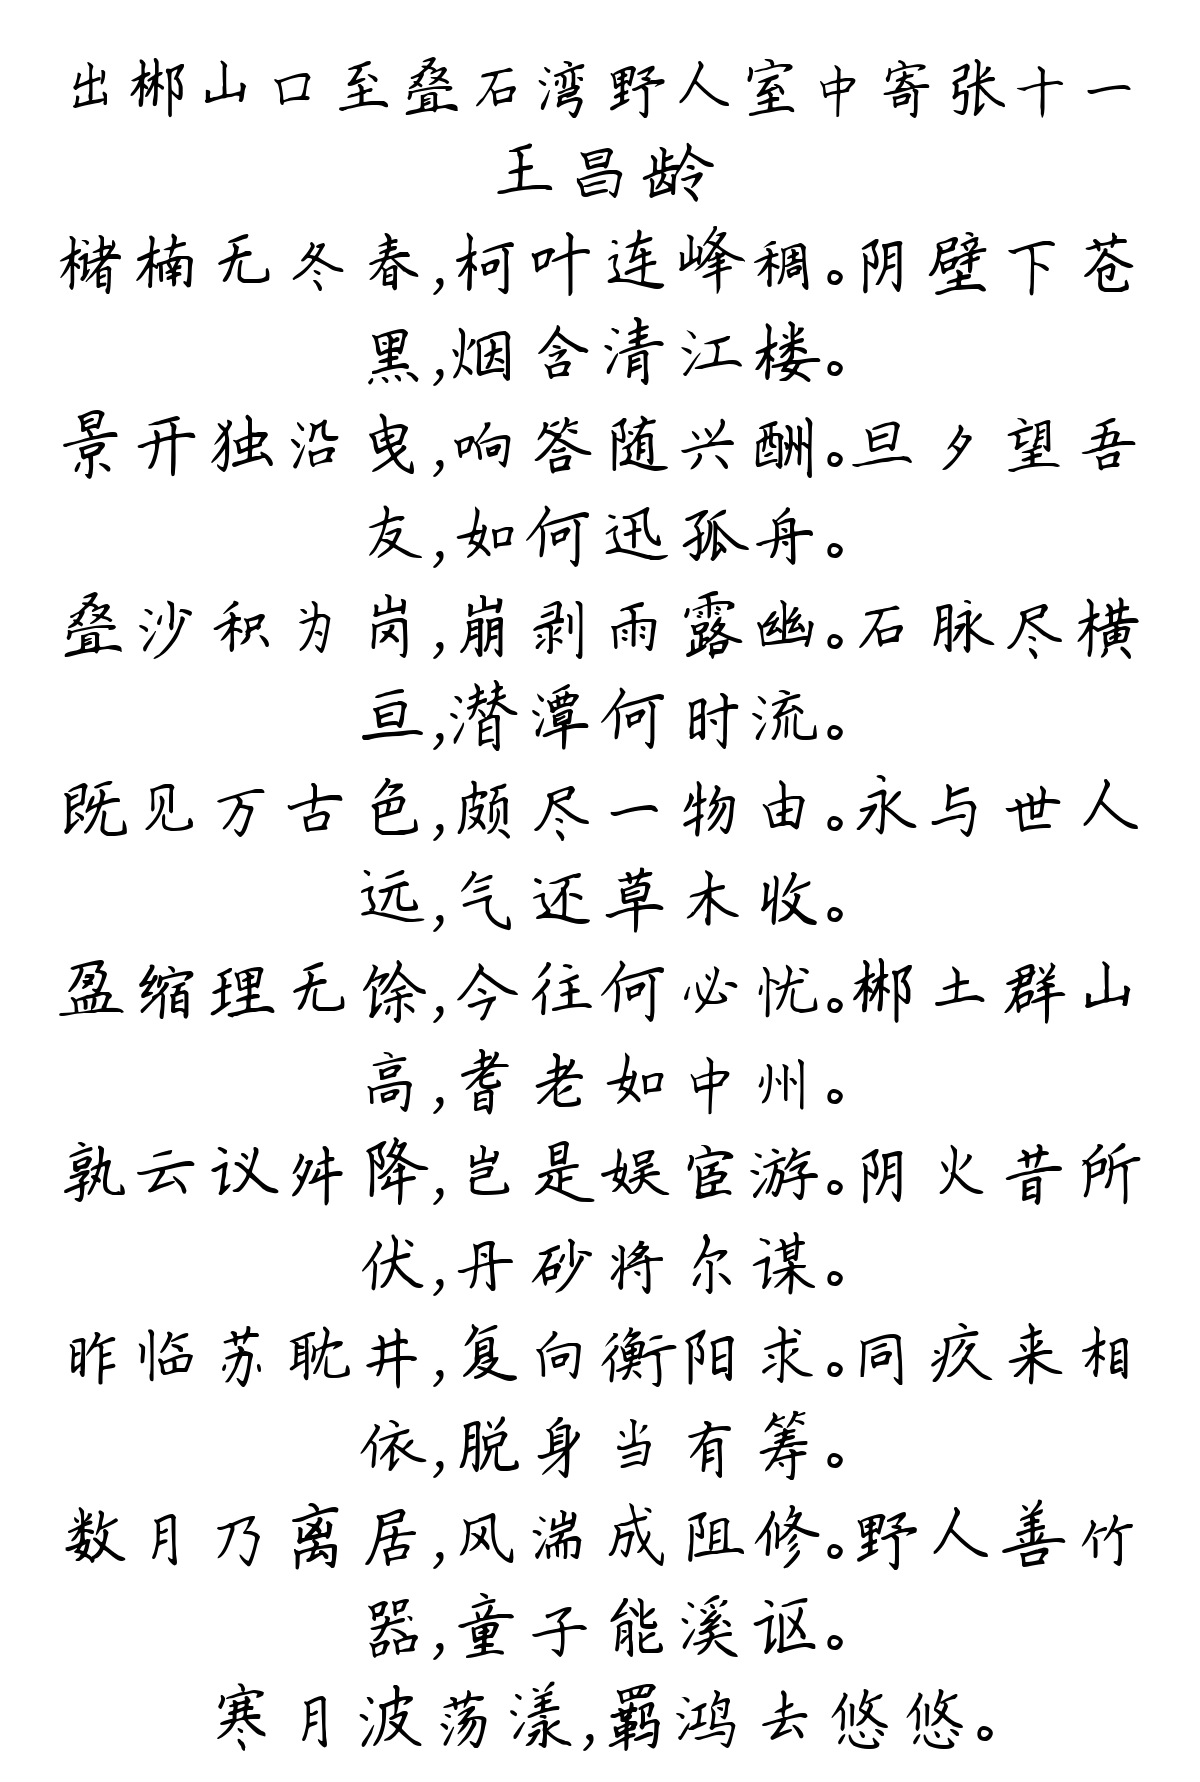 出郴山口至叠石湾野人室中寄张十一
王昌龄
槠楠无冬春,柯叶连峰稠。阴壁下苍
黑,烟含清江楼。
景开独沿曳,响答随兴酬。旦夕望吾
友,如何迅孤舟。
叠沙积为岗,崩剥雨露幽。石脉尽横
亘,潜潭何时流。
既见万古色,颇尽一物由。永与世人
远,气还草木收。
盈缩理无馀,今往何必忧。郴土群山
高,耆老如中州。
孰云议舛降,岂是娱宦游。阴火昔所
伏,丹砂将尔谋。
昨临苏耽井,复向衡阳求。同疚来相
依,脱身当有筹。
数月乃离居,风湍成阻修。野人善竹
器,童子能溪讴。
寒月波荡漾,羁鸿去悠悠。